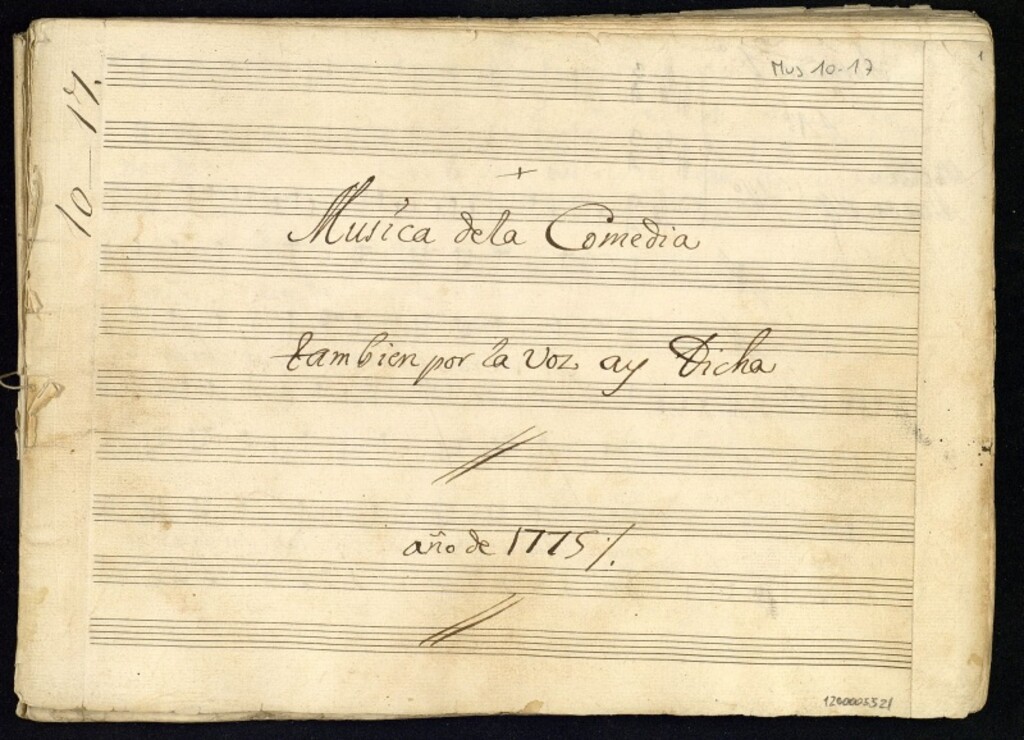 Mus 10-17
1
10-17.
+
Musica dela Comedia
tambien por la voz ay Dicha
año de 1775/.
1200005521